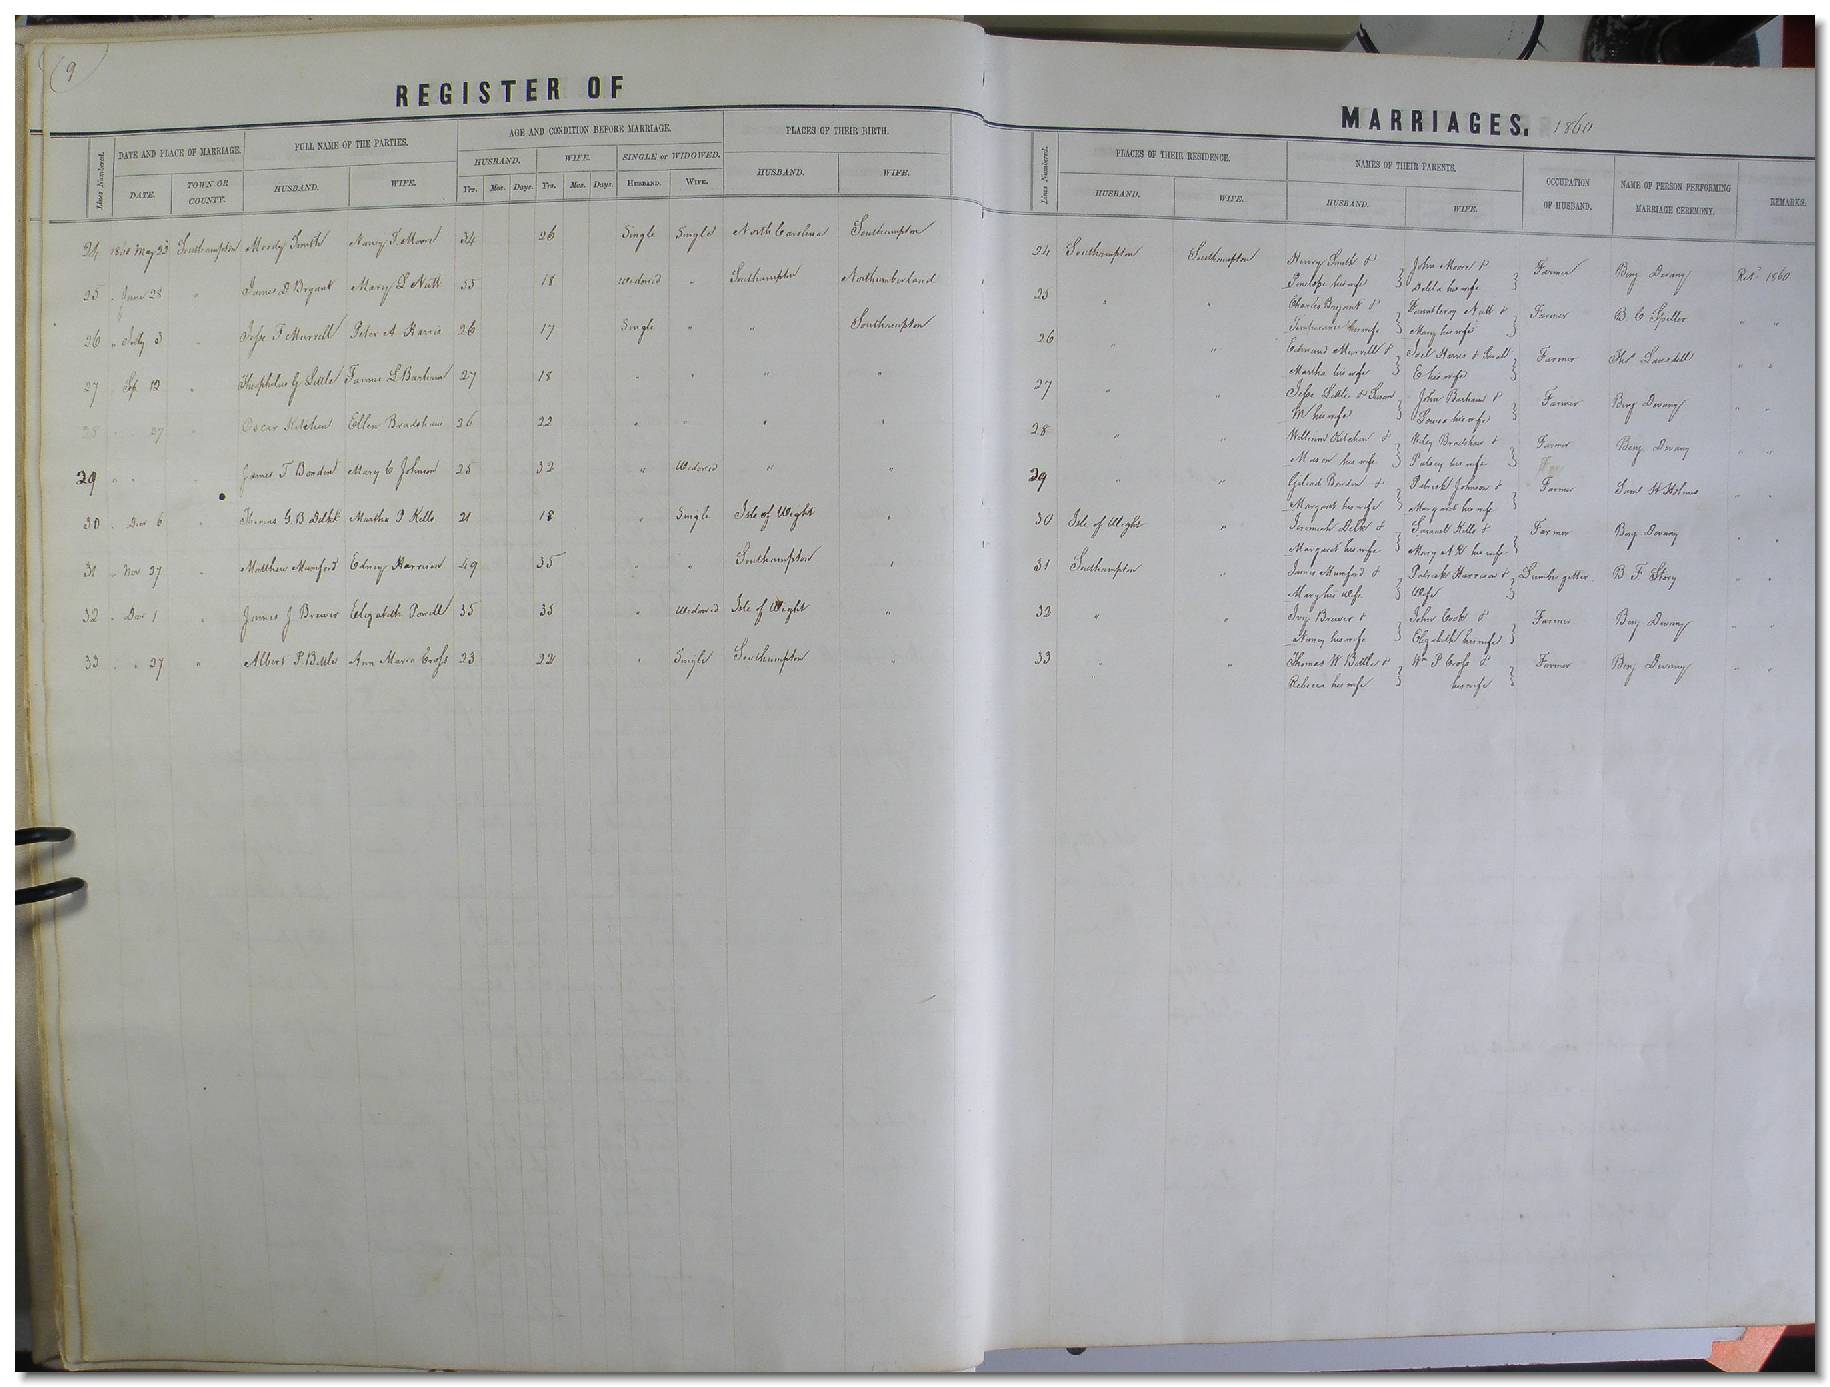 9
REGISTER OF
Lines Numbered.
DATE AND PLACE OF MARRIAGE.
FULL NAME OF THE PARTIES.
AGE AND CONDITION BEFORE MARRIAGE.
PLACES OF THEIR BIRTH.
DATE.
TOWN OR COUNTY.
HUSBAND.
WIFE.
HUSBAND.
WIFE.
SINGLE or WIDOWED.
HUSBAND.
WIFE.
Yrs. Mos. Days. Yrs. Mos. Days. HUSBAND. WIFE.
24 1860 May 23 Southampton Moody Smith Nancy T. Moore 34 26 Single Single North Carolina Southampton
25 " June 28 " James D Bryant Mary L Nutt 55 18 Widowed " Southampton Northumberland
26 " July 3 " Jesse F Murrell Peter A Harris 26 17 Single " " Southampton
27 " Sep 12 " Theophilus G Little Fannie L Barham 27 18 " " " "
28 " " 27 " Oscar Kitchen Ellen Bradshaw 26 22 " " " "
29 " " " James T Borden Mary C Johnson 25 32 " Widowed " "
30 " Dec 6 " Thomas G. B Martha Kello 21 18 " Single Isle of Wight "
31 " Nov 27 " Matthew Mumford Edney Harrison 49 35 " " Southampton "
32 " Dec 1 " James J Brewer Elizabeth Powell 35 35 " Widowed Isle of Wight "
33 " " 27 " Albert P. Battle Ann Maria Cross 23 22 " Single Southampton "
MARRIAGES. 1860
Lines Numbered.
PLACES OF THEIR RESIDENCE.
NAMES OF THEIR PARENTS.
OCCUPATION OF HUSBAND.
NAME OF PERSON PERFORMING MARRIAGE CEREMONY.
REMARKS.
HUSBAND.
WIFE.
HUSBAND.
WIFE.
24 Southampton Southampton Henry Smith & John Moore & Farmer Benj Devany Ret 1860
Penelope his wife Delila his wife
25 " " Charles Bryant & Nutt & Farmer B. C Spiller " "
his wife Mary his wife
26 " " Edmund Murrell & Joel Harris & Farmer " "
Martha his wife E his wife
27 " " Jesse Little & Susan John Barham & Farmer Benj Devany " "
W his wife Louisa his wife
28 " " William Kitchen & Wiley Bradshaw & Farmer Benj Devany " "
Mason his wife Patsey his wife
29 " " Borden & Patrick Johnson & Farmer Saml W Holmes " "
Margaret his wife Margaret his wife
30 Isle of Wight " Jeremiah & Samuel Kello & Farmer Benj Devany " "
Margaret his wife Mary his wife
31 Southampton " James Mumford & Patrick Harrison & Lumber getter B. F. Story " "
Mary his Wife Wife
32 " " Brewer & John Cook & Farmer Benj Devany " "
Nancy his wife Elizabeth his wife
33 " " Thomas W Battle & Wm P Cross & Farmer Benj Devany " "
Rebecca his wife his wife